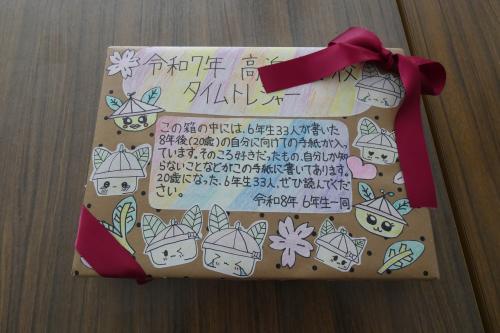 令和7年 高浜 校
タイムトレジャー
この箱の中には、6年生33人が書いた
8年後(20歳)の自分に向けての手紙が入っ
ています。そのころ好きだったもの、自分しか知
らないことなどがこの手紙に書いてあります。
20歳になった、6年生33人、ぜひ読んでくだ
さい。
令和8年 6年生一同